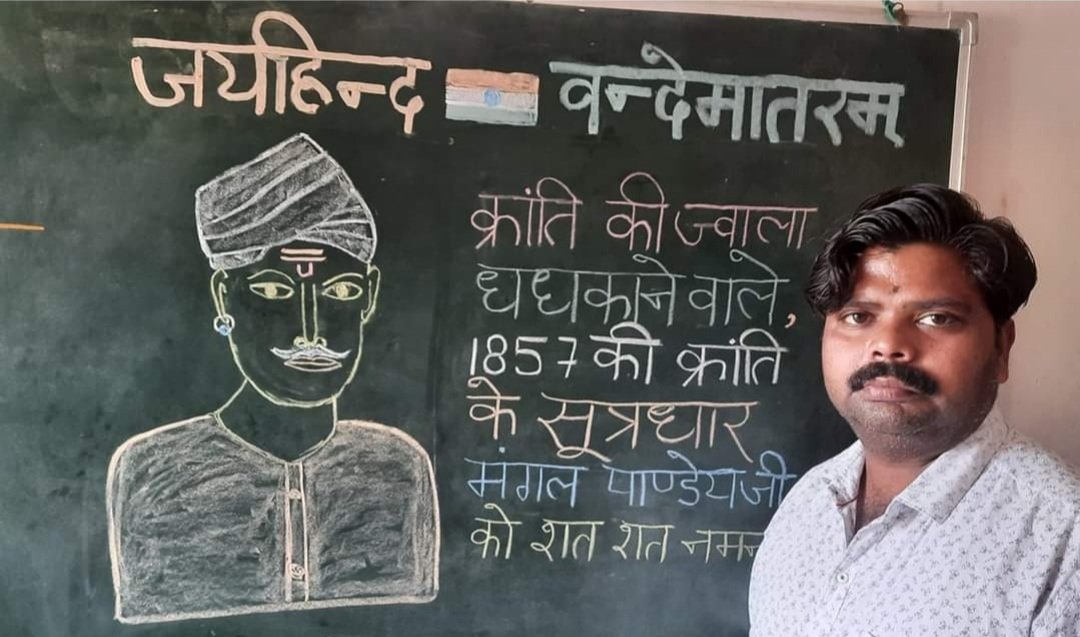 जयहिन्द वन्देमातरम्
क्रांति की ज्वाला
धधकाने वाले,
1857 की क्रांति
के सूत्रधार
मंगल पाण्डेयजी
को शत शत नमन